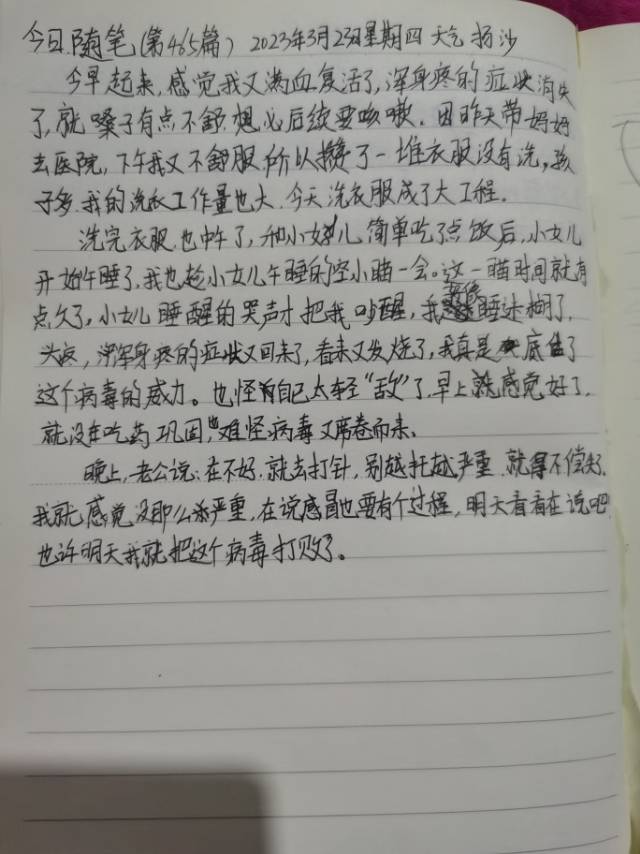 今日随笔(第465篇) 2023年3月23日星期四 天气 扬沙
今早起来,感觉我又满血复活了,浑身疼的症状消失
了,就嗓子有点不舒,想必后续要咳嗽。因昨天带妈妈
去医院,下午我又不舒服,所以攒了一堆衣服没有洗,孩
子多,我的洗衣工作量也大,今天洗衣服成了大工程。
洗完衣服也中午了,和小女儿简单吃了点饭后,小女儿
开始午睡了,我也趁小女儿午睡的空小瞄一会。这一瞄时间就有
点久了,小女儿睡醒的哭声才把我吵醒,我睡迷糊了,
头疼,浑身疼的症状又回来了,看来又发烧了,我真是底估了
这个病毒的威力。也怪自己太轻“敌”了,早上就感觉好了,
就没在吃药巩固,难怪病毒又席卷而来。
晚上,老公说:在不好,就去打针,别越托越严重,就得不偿失了,
我就感觉没那么严重,在说感冒也要有个过程,明天看看在说吧
也许明天我就把这个病毒打败了。